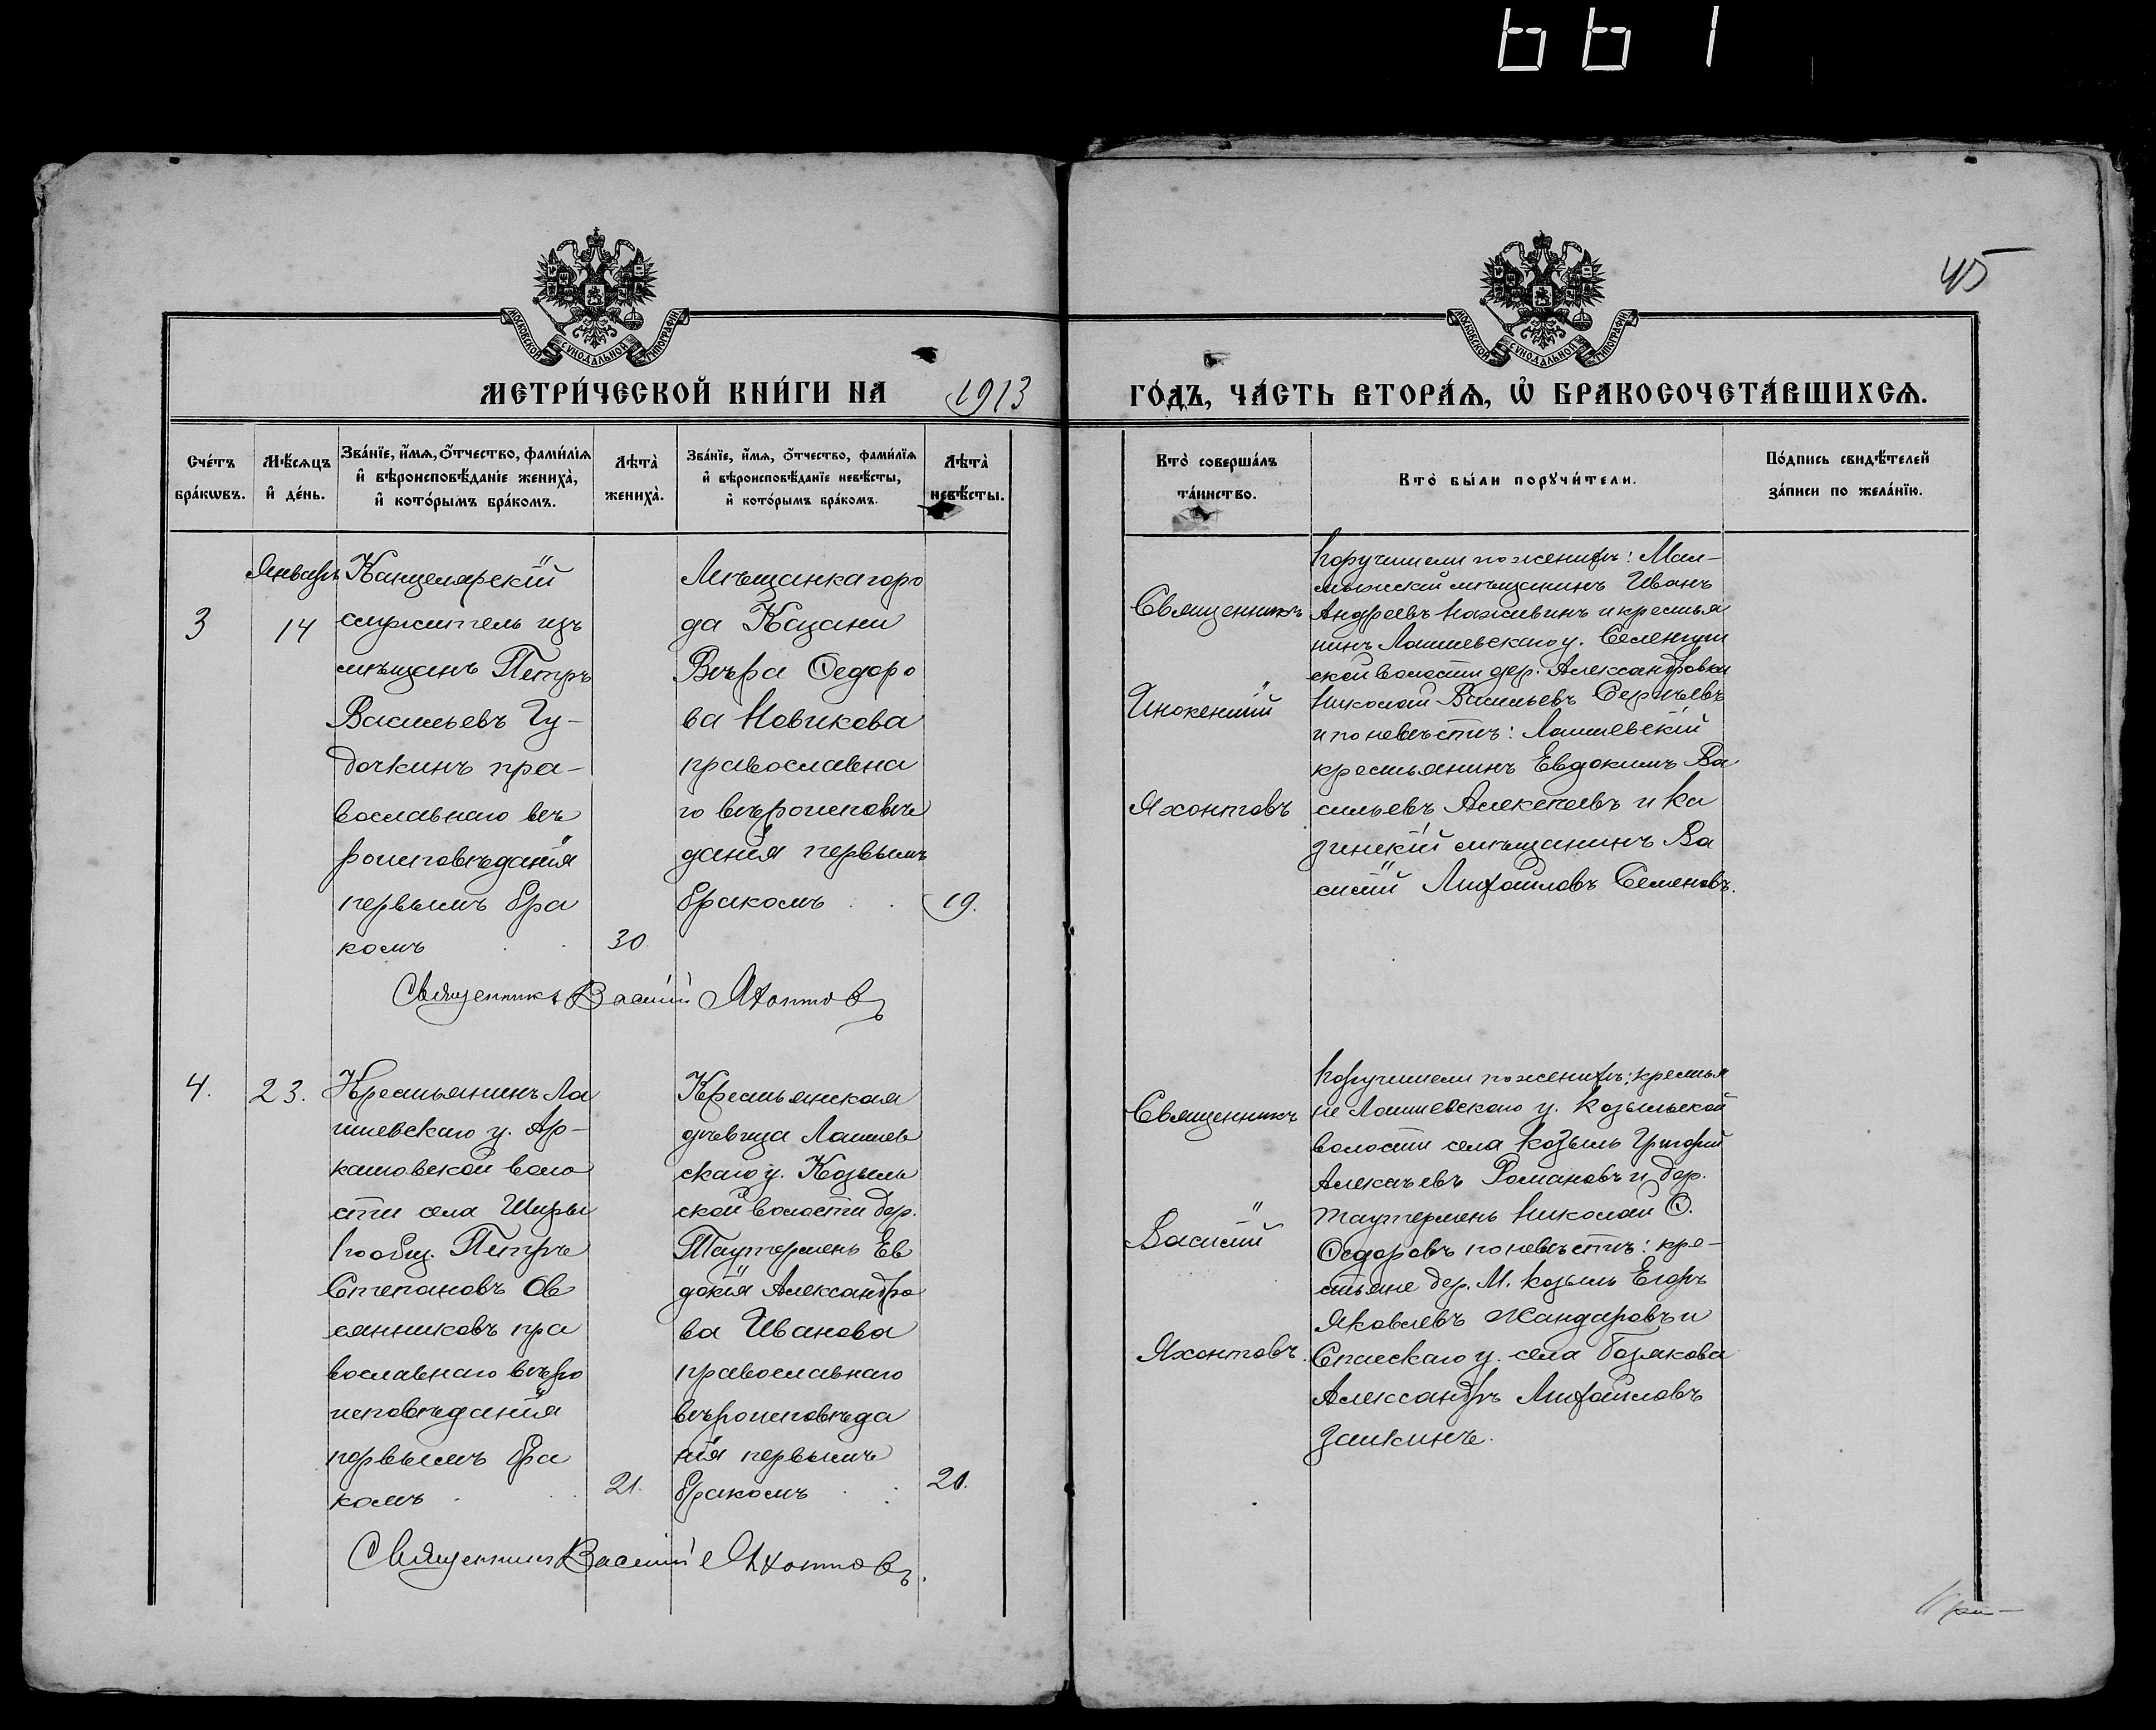 661
45
МОСКОВСКОЙ СѴНОДАЛЬНОЙ ТИПОГРАФІИ
МОСКОВСКОЙ СѴНОДАЛЬНОЙ ТИПОГРАФІИ
МЕТРИ́ЧЕСКОЙ КНИ́ГИ НА 1913 ГО́ДЪ, ЧА́СТЬ ВТОРА́Ѧ, Ѡ҆ БРАКОСОЧЕТА́ВШИХСѦ.
Сче́тъ бра́кѡвъ.
Мѣ́сѧцъ и҆ де́нь.
Зва́нїе, и҆́мѧ, ѻ҆́тчество, фами́лїѧ
и҆ вѣроисповѣ́данїе жениха̀,
и҆ кото́рымъ бра́комъ.
Лѣта̀ жениха̀.
Зва́нїе, и҆́мѧ, ѻ҆́тчество, фами́лїѧ
и҆ вѣроисповѣ́данїе невѣ́сты,
и҆ кото́рымъ бра́комъ.
Лѣта̀ невѣ́сты.
Кто̀ соверша́лъ та́инство.
Кто̀ бы́ли порꙋчи́тели.
По́дпись свидѣ́телей
за́писи по жела́нїю.
3
Январь
14
Канцелярскій
служитель изъ
мѣщанъ Петръ
Васильевъ Гу-
дочкинъ пра-
вославнаго вѣ
роисповѣданія
первымъ бра
комъ
30.
Мѣщанка горо
да Казани
Вѣра Ѳедоро
ва Новикова
православна
го вѣроисповѣ
данія первымъ
бракомъ
19.
Священникъ
Инокентій
Яхонтовъ
Поручители по женихѣ: Мал-
мыжскій мѣщанинъ Иванъ
Андреевъ Наживинъ и крестья
нинъ Лаишевскаго у.
ской волости дер. Александровки
Николай Васильевъ Сергѣевъ
и по невѣстѣ: Лаишевскій
крестьянинъ Евдокимъ Ва
сильевъ Алексѣевъ и Ка
занскій мѣщанинъ Ва
силій Михайловъ Семеновъ.
Священникъ Василій Яхонтовъ
4.
23.
Крестьянинъ Ла
ишевскаго у. Ар-
катовской воло
сти села Ширы
Пообщ. Петръ
Степановъ Ов
сянниковъ пра
вославнаго вѣро
исповѣданія
первымъ бра
комъ
21.
Крестьянская
дѣвица Лаишев
скаго у. Козыль
ской волости дер.
Таутермень Ев
докія Александро
ва Иванова
православнаго
вѣроисповѣда
нія первымъ
бракомъ
20.
Священникъ
Василій
Яхонтовъ.
Поручители по женихѣ: крестья
не Лаишевскаго у. Козыльской
волости села Козыль Григорій
Алексѣевъ Романовъ и дер.
Таутермень Николай Ѳ.
Ѳедоровъ по невѣстѣ: кре-
стьяне дер. М. Козыли Егоръ
Яковлевъ Жандаровъ и
Спасскаго у. села Базякова
Александръ Михайловъ
Заикинъ.
Священникъ Василій Яхонтовъ.